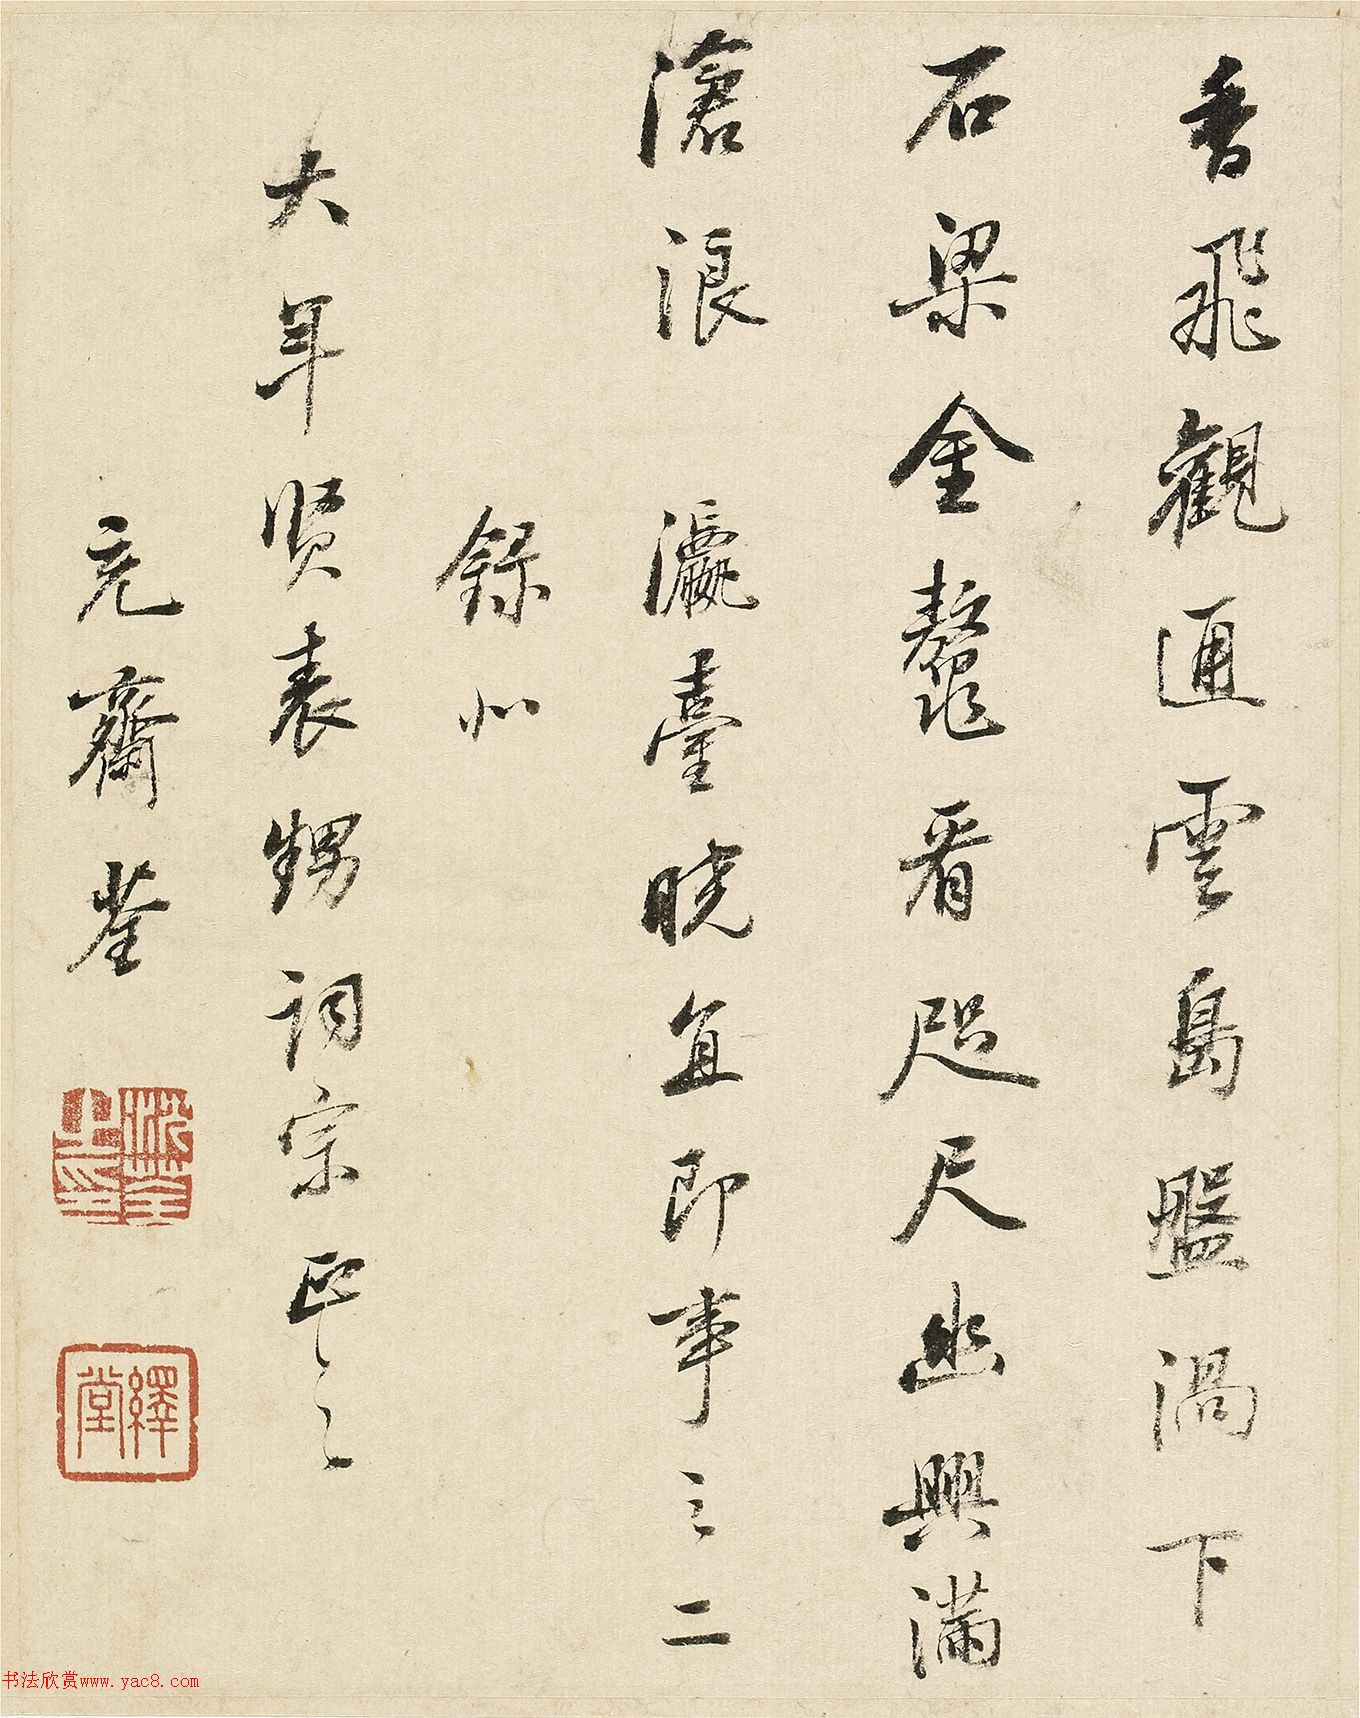 香飛觀通雲島盤渦下
石梁金鼇看咫尺幽興滿
滄浪 瀛臺曉直即事之二
錄似
大年賢表甥詞宗正之
充齋荃
沈荃之印
繹堂
书法欣赏www.yac8.com